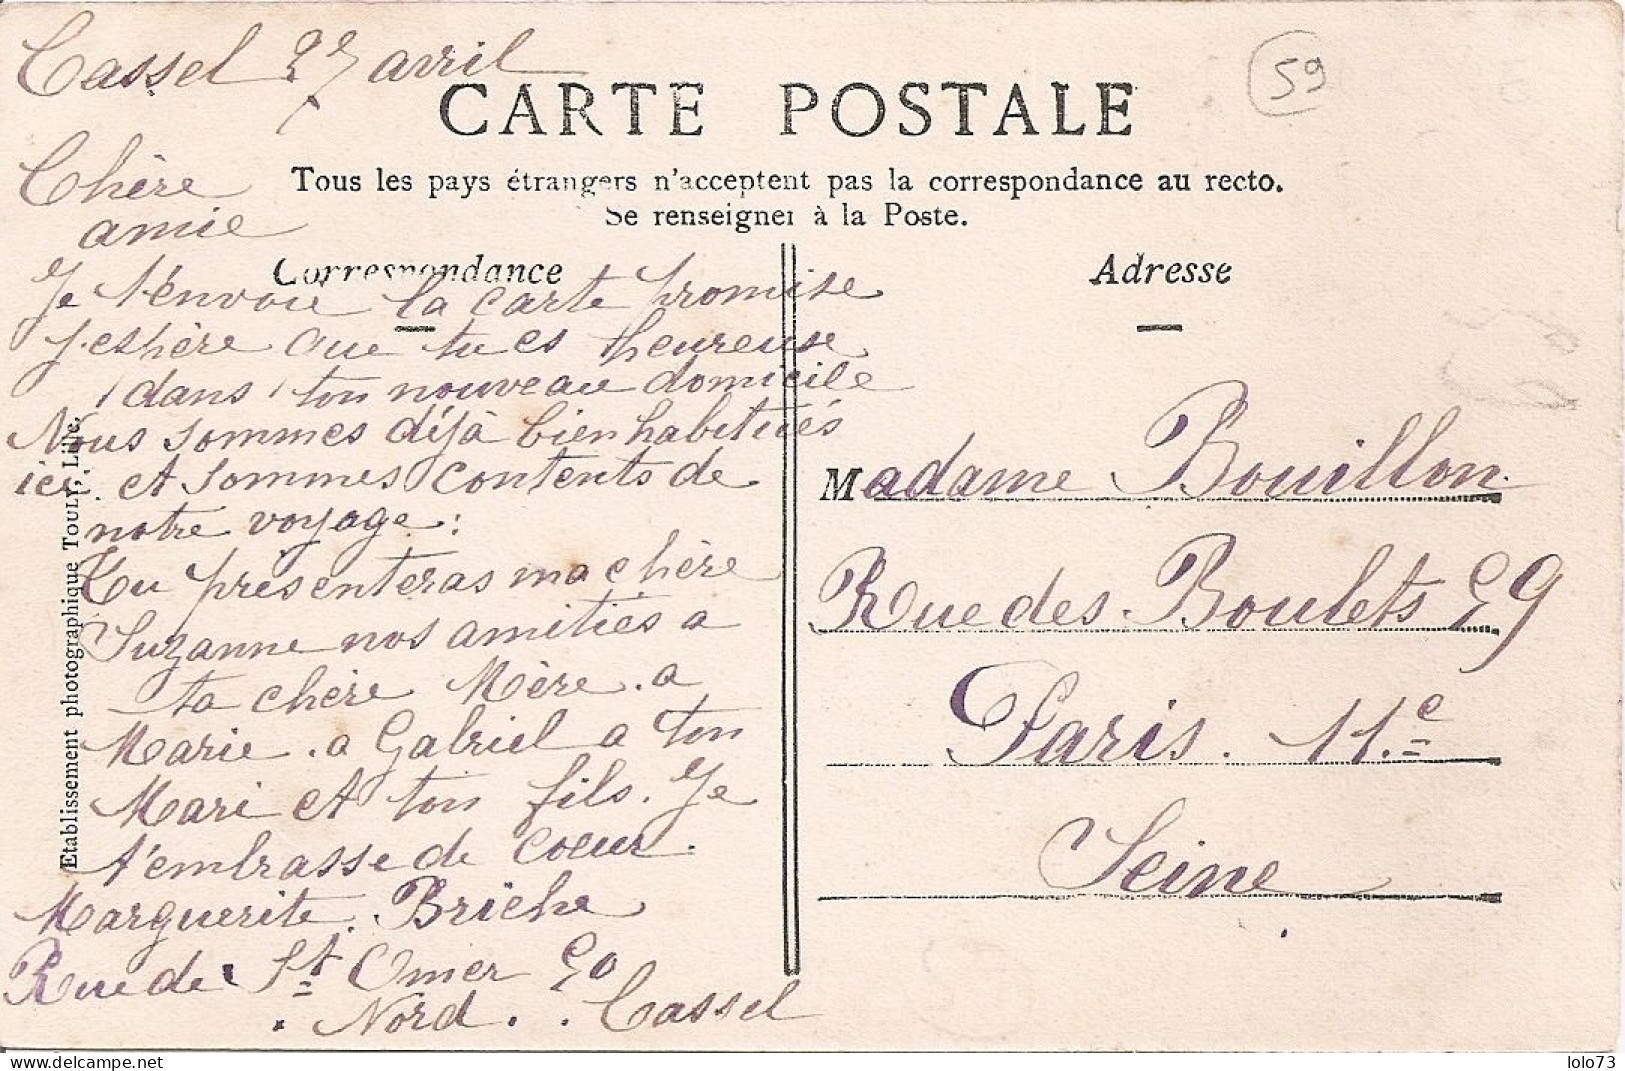 Cassel 27 avril
59
CARTE POSTALE
Tous les pays étrangers n'acceptent pas la correspondance au recto.
Se renseigner à la Poste.
Chère
amie
Correspondance
Je t'envoie la carte promise
J'espère que tu es heureuse
dans ton nouveau domicile
Nous sommes déjà bien habitués
ici et sommes contents de
notre voyage:
Tu présenteras ma chère
Suzanne nos amitiés a
ta chère Mère. a
Marie. a Gabriel a ton
Mari et ton fils. Je
t'embrasse de coeur.
Marguerite. Briche
Rue de St Omer 20
Nord. Cassel
Etablissement photographique TOULY, Lille.
Adresse
Madame Bouillon
Rue des Boulets 29
Paris. 11.e
Seine
lolo73